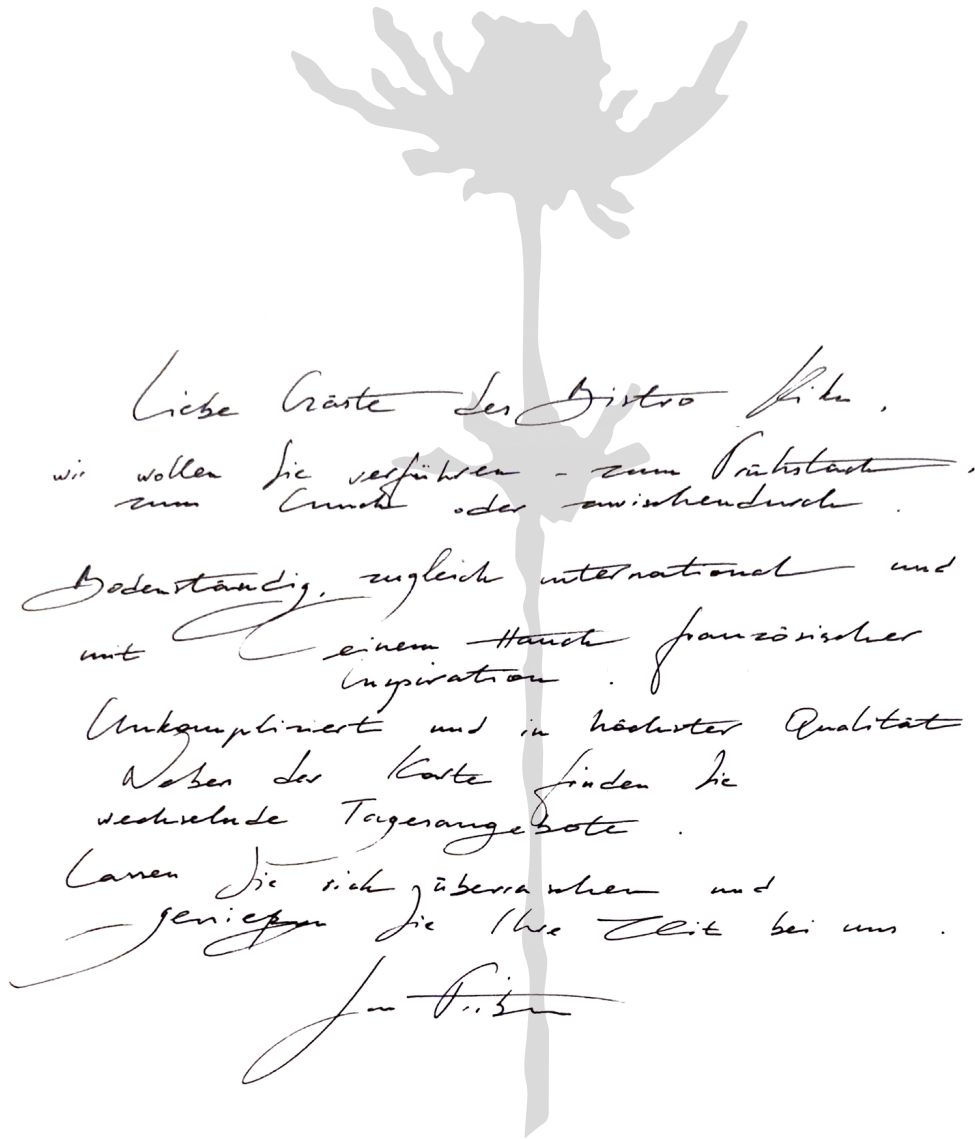 Liebe Gäste des Bistro
wir wollen Sie verführen – zum Frühstück,
zum Lunch oder zwischendurch.
Bodenständig, zugleich international und
mit einem Hauch französischer
Inspiration.
Unkompliziert und in höchster Qualität
Neben der Karte finden Sie
wechselnde Tagesangebote.
Lassen Sie sich überraschen und
genießen Sie Ihre Zeit bei uns.